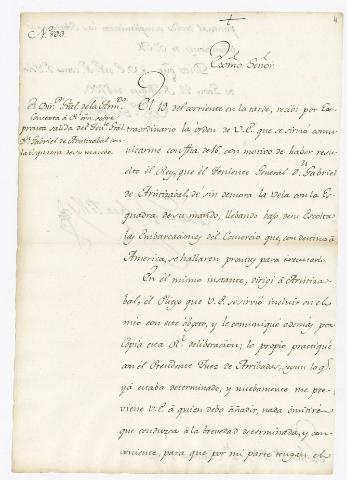 Nº 833.
Exmo. Señor.
El Dirº. Gral. de la Armda.
Contexta á Rl. orn. sobre
pronta salida del Tente. Gral.
Dn. Gabriel de Aristizabal con
la Esquadra de su mando.
El 19 del corriente en la tarde, recibí por Ex-
traordinario la òrden de V.E. que se sirvió comu-
nicarme con fha. de 16, con motivo de haber resu-
elto el Rey, que el Teniente General Dn. Gabriel
de Aristizabal, dé sin demora la Vela con la Es-
quadra de su mando, llebando bajo de su Escolta
las Embarcaciones del Comercio que, con destino á
America, se hallaren prontas para executarlo.
En el mismo instante, dirigí á Aristiza-
bal, el Pliego que V.E. se sirvió incluir en el
mio con este óbjeto, y le comuniqué además por
Copia esta Rl. deliberacion; lo propio practiqué
con el Presidente Juez de Arribadas, segun lo qe.
yá estaba determinado, y nuebamente me pre-
viene V.E. á quien debo añadir, nada ómitiré
que conduzca á la brevedad determinada, y con-
veniente, para que por mi parte tengan el